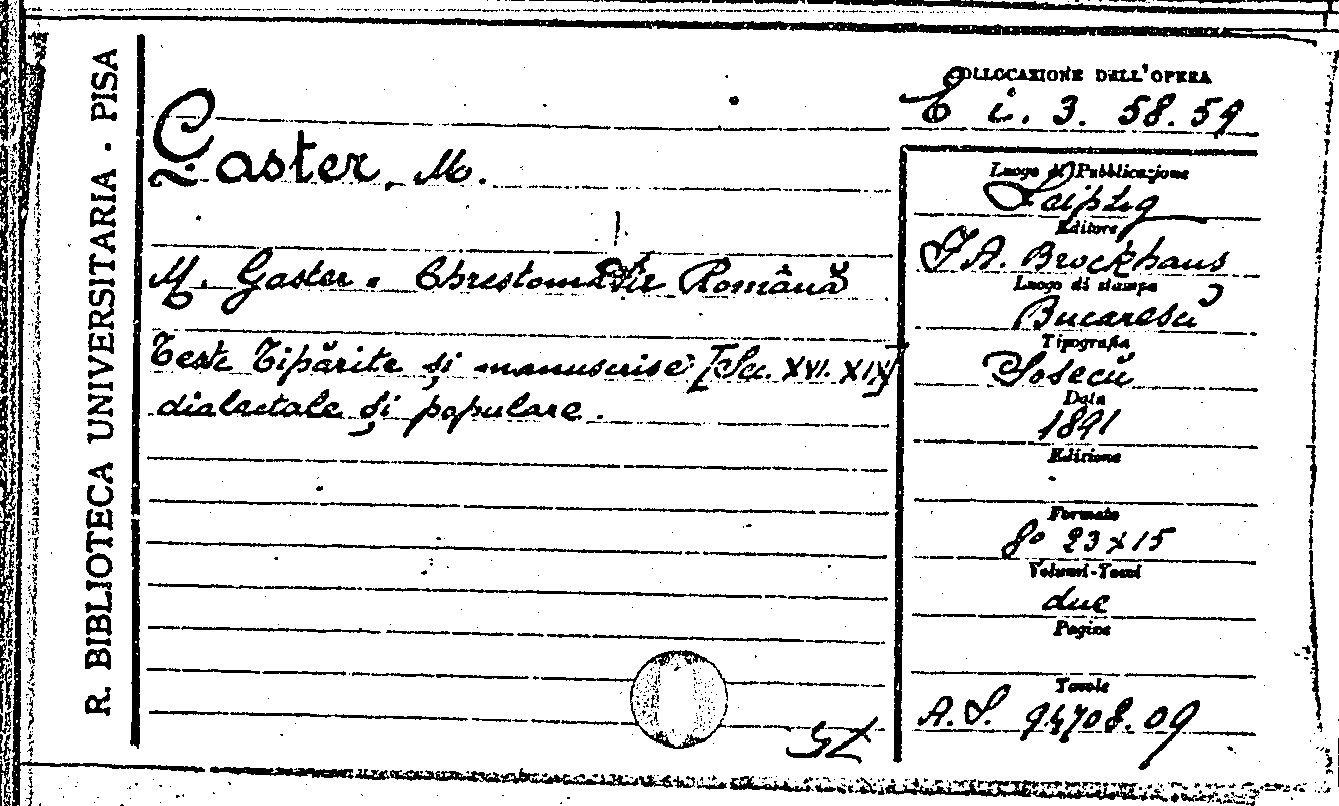 R. BIBLIOTECA UNIVERSITARIA · PISA
COLLOCAZIONE DELL'OPERA
E i. 3. 58. 59
Gaster, M.
M. Gaster. Chrestomatie Română
Teste Tipărite și manuscrise [Sec. XVI. XIX]
dialectale și populare.
Luogo di Pubblicazione
Leipzig
Editore
F. A. Brockhaus
Luogo di stampa
Bucarescŭ
Tipografia
Sosecŭ
Data
1891
Edizione
Formato
8° 23x15
Volumi-Tomi
due
Pagine
Tavole
A. S. 94708.09